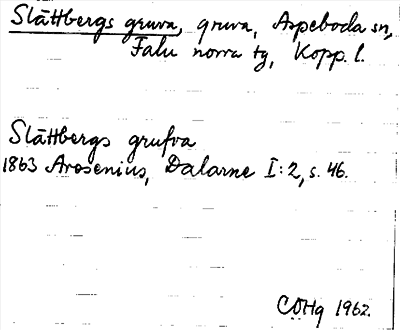 Slättbergs gruva, gruva, Aspeboda sn,
Falu norra tg, Kopp. l.
Slättbergs grufva
1863 Arosenius, Dalarne I:2, s. 46.
CÖHg 1962.